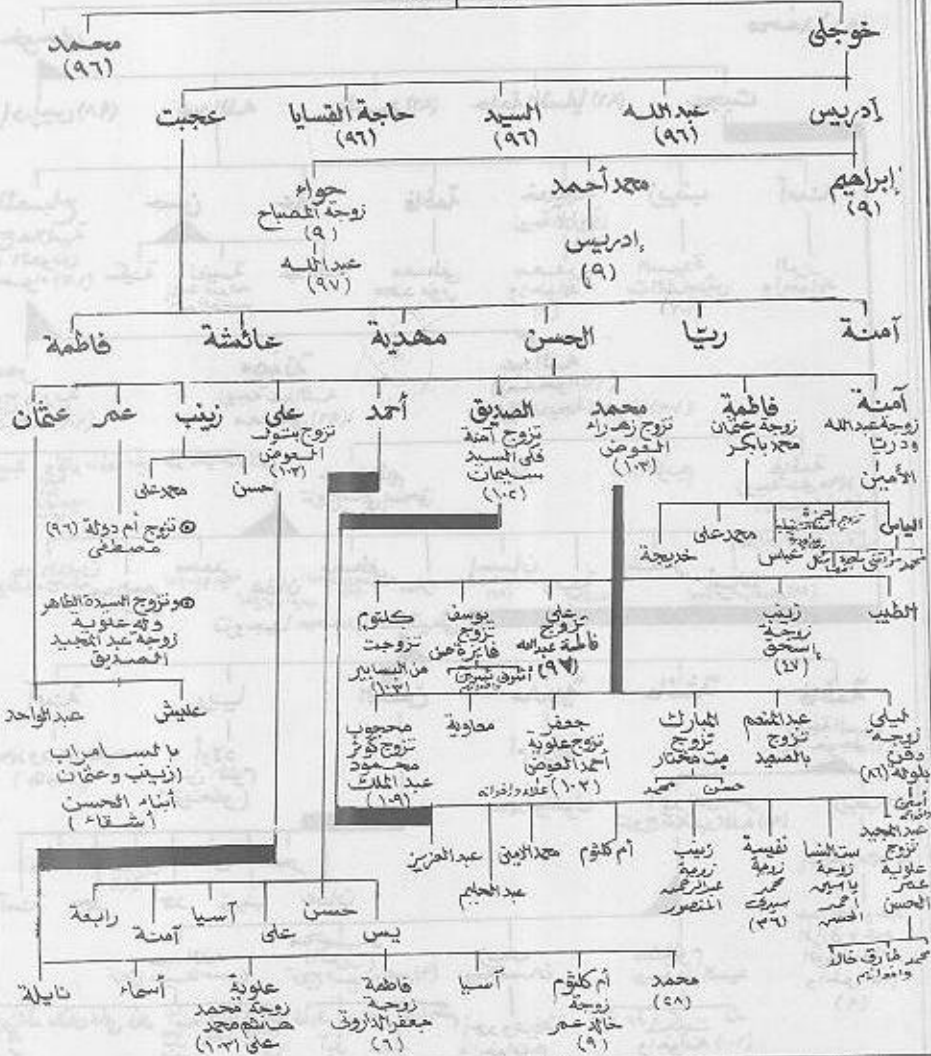 خوجلى
محمد
(٩٦)
إدريس
عبدالله
(٩٦)
السيد
(٩٦)
حاجة القسايا
(٩٦)
عجبت
إبراهيم
(٩)
محمد أحمد
إدريس
(٩)
حواء
زوجة المصباح
(٩)
عبدالله
(٩٧)
آمنة
ريّا
الحسن
مهدية
عائشة
فاطمة
آمنة
زوجة عبدالله
ودريّا
الأمين
الياس
فاطمة
زوجة عثمان
محمد بابكر
عباس
محمد على
خديجة
محمد
تزوج زهراء
العوض
(١٠٣)
الصديق
تزوج آمنة
فكى السيد
سليمان
(١٠٢)
أحمد
على
تزوج بتول
العوض
(١٠٣)
زينب
حسن
محمد على
عمر
عثمان
تزوج أم دولة (٩٦)
مصطفى
وتزوج السيدة الطاهر
وله علوية
زوجة عبد المجيد
الصديق
عليش
عبدالواحد
بالسامراب
(زينب وعثمان
أبناء الحسن
أشقاء)
الطيب
زينب
زوجة
إسحق
(٤٧)
على
تزوج
فاطمة عبدالله
(٩٧)
يوسف
تزوج
فايزة
كلثوم
تزوجت
(١٠٣)
ليلى
زوجة
دفع
(٨٦)
عبدالمنعم
تزوج
بالصعيد
المبارك
تزوج
بت مختار
حسن
محمد
جعفر
تزوج علوية
أحمد العوض
(١٠٢)
علاء وإخوانه
معاوية
محجوب
تزوج كوثر
محمود
عبد الملك
(١٠٩)
عبدالمجيد
تزوج
علوية
عمر
الحسن
محمد طارق خالد
وإخوانهم
ست النسا
زوجة
ياسين
أحمد
الحسن
نفيسة
زوجة
محمد
سيدى
(٣٦)
زينب
زوجة
عبدالرحمن
المنصور
أم كلثوم
محمد الأمين
عبد الحليم
عبدالعزيز
يس
حسن
على
آسيا
آمنة
رابعة
محمد
(٢٨)
أم كلثوم
زوجة
خالد عمر
(٩)
آسيا
فاطمة
زوجة
جعفر الداروتى
(٦)
علوية
زوجة محمد
هاشم محمد
على (١٠٣)
أسماء
نايلة